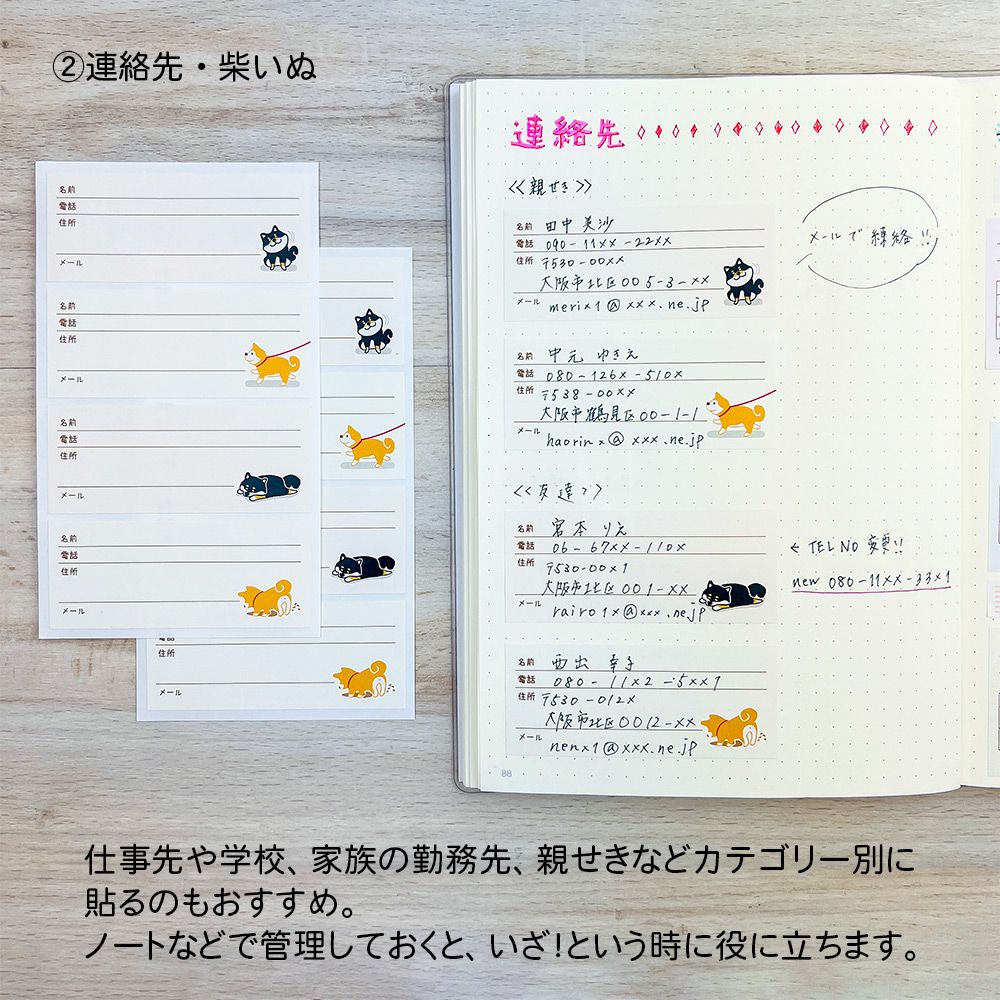 ②連絡先・柴いぬ
名前
電話
住所
メール
名前
電話
住所
メール
名前
電話
住所
メール
名前
電話
住所
メール
電話
住所
メール
連絡先
<<親せき>>
名前 田中 美沙
電話 090-11××-22××
住所 〒530-00××
大阪市北区005-3-××
メール meri×1@×××.ne.jp
メールで練絡!!
名前 中元 ゆきえ
電話 080-126×-510×
住所 〒538-00××
大阪市鶴見区00-1-1
メール haorin×@×××.ne.jp
<<友達>>
名前 宮本 りえ
電話 06-67××-110×
住所 〒530-00×1
大阪市北区001-××
メール rairo1×@×××.ne.jp
← TEL NO 変更!!
new 080-11××-33×1
名前 西出 幸子
電話 080-11×2-5××1
住所 〒530-012×
大阪市北区0012-××
メール nen×1@×××.ne.jp
88
仕事先や学校、家族の勤務先、親せきなどカテゴリー別に
貼るのもおすすめ。
ノートなどで管理しておくと、いざ!という時に役に立ちます。